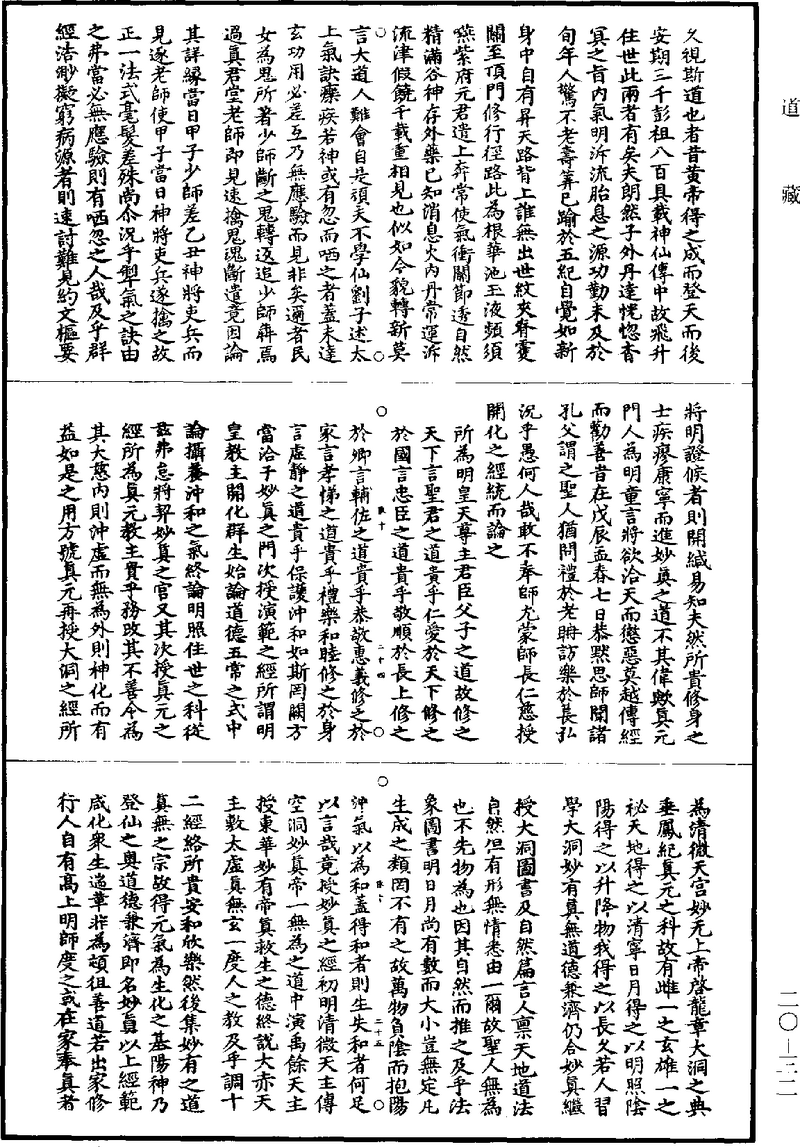 道藏
久視斯道也者昔黃帝得之成而登天而後
安期三千彭祖八百具載神仙傳中故飛升
住世此兩者有矣夫朗然子外丹達恍惚杳
冥之旨內氣明泝流胎息之源功勤未及於
旬年人驚不老壽筭已踰於五紀自覺如新
身中自有昇天路背上誰無出世紋夾脊靈
關至頂門修行徑路此為根華池玉液頻須
嚥紫府元君遣上奔常使氣衝關節透自然
精滿谷神存外藥已知消息火內丹常運泝
流津假饒千載重相見也似如今貌轉新莫
言大道人難會自是頑夫不學仙劉子述太
上氣訣療疾若神或有忽而哂之者蓋未達
玄功用必差互乃無應驗而見非矣邇者民
女為鬼所著少師斷之鬼轉返追少師犇焉
過真君堂老師即見速擒鬼魂斷遣竟因論
其詳緣當日甲子少師差乙丑神將吏兵而
見逐老師使甲子當日神將吏兵遂擒之故
正一法式毫髮差殊尚尒況乎掣氣之訣由
之弗當必無應驗則有哂忽之人哉及乎群
經浩眇擬窮病源者則速討難見約文樞要
將明證候者則開緘易知夫然所貴修身之
士疾瘳康寧而進妙真之道不其偉歟真元
門人為明童言將欲洽天而懲惡莫越傳經
而勸善昔在戊辰孟春七日恭默思師聞諸
孔父謂之聖人猶問禮於老聃訪樂於萇弘
況乎愚何人哉敢不奉師尤蒙師長仁慈授
開化之經統而論之
所為明皇天尊主君臣父子之道故修之
天下言聖君之道貴乎仁愛於天下修之
於國言忠臣之道貴乎敬順於長上修之
於鄉言輔佐之道貴乎恭敬惠義修之於
家言孝悌之道貴乎禮樂和睦修之於身
言虛靜之道貴乎保護沖和如斯罔闕方
當洽于妙真之門次授演範之經所謂明
皇教主開化群生始論道德五常之式中
論攝養沖和之氣終論明照住世之科從
茲弗怠將契妙真之官又其次授真元之
經所為真元教主貫乎務改其不善令為
其大慈內則沖虛而無為外則神化而有
益如是之用方號真元再授大洞之經所
為清微天宮妙无上帝啓龍章大洞之典
垂鳳紀真元之科故有雌一之玄雄一之
祕天地得之以清寧日月得之以明照陰
陽得之以升降物我得之以長久若人習
學大洞妙有真無道德兼濟仍合妙真繼
授大洞圖書及自然篇言人禀天地道法
自然但有形無情悉由一爾故聖人無為
也不先物為也因其自然而推之及乎法
象圖書明日月尚有數而大小豈無定凡
生成之類罔不有之故萬物負陰而抱陽
沖氣以為和蓋得和者則生失和者何足
以言哉竟授妙真之經初明清微天主傳
空洞妙真帝一無為之道中演禹餘天主
授東華妙有帝真救生之德終說大赤天
主敷太虛真無玄一度人之教及乎調十
二經絡所貴安和欣樂然後集妙有之道
真無之宗故得元氣為生化之基陽神乃
登仙之奧道德兼濟即名妙真以上經範
咸化衆生遄革非為頓徂善道若出家修
行人自有高上明師度之或在家奉真者
二十四
二十五
二〇—三二